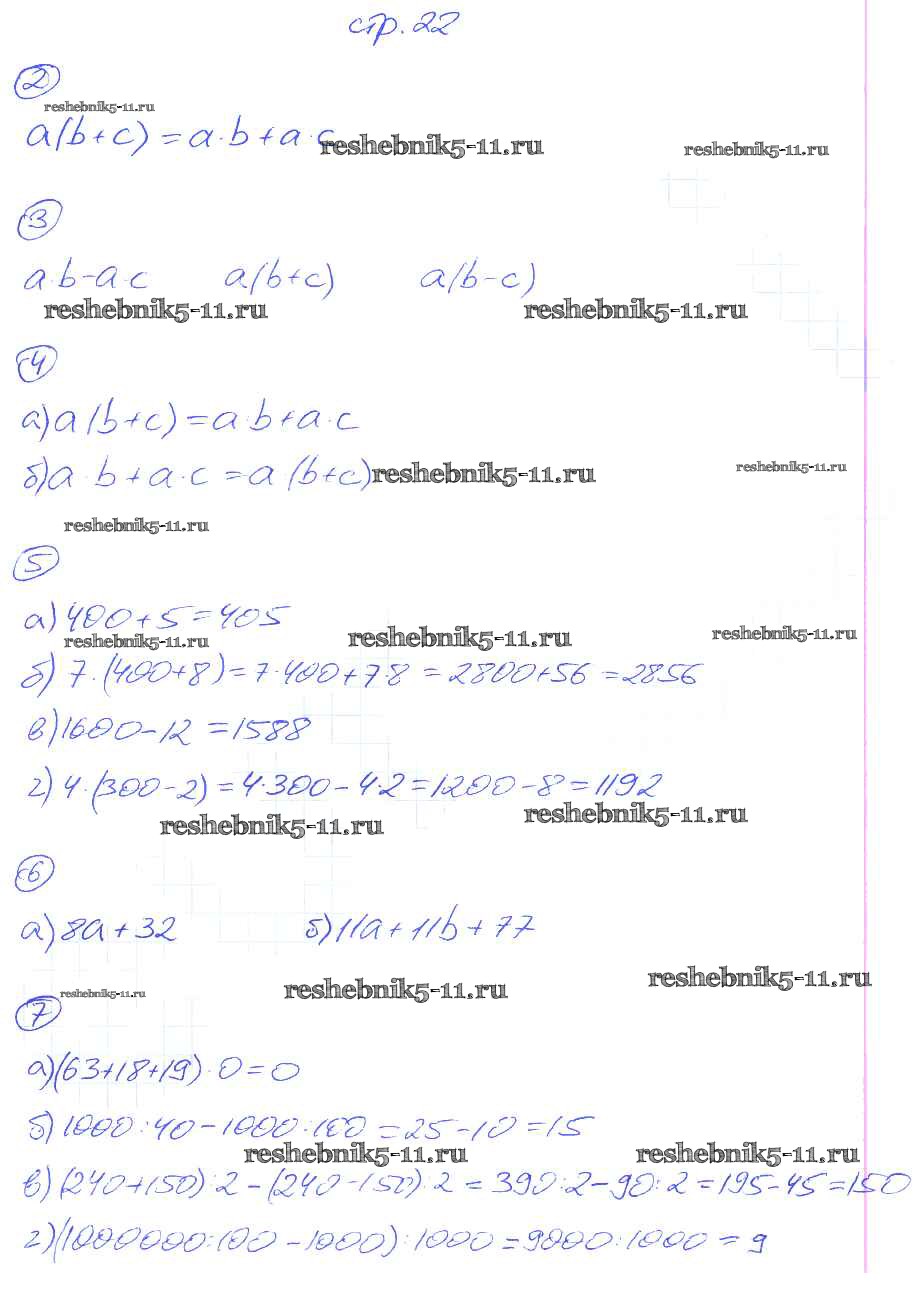 стр. 22
2
reshebnik5-11.ru
a(b+c) = a·b + a·c
reshebnik5-11.ru
reshebnik5-11.ru
3
a·b-a·c a(b+c) a(b-c)
reshebnik5-11.ru reshebnik5-11.ru
4
а) a(b+c) = a·b + a·c
б) a·b + a·c = a(b+c) reshebnik5-11.ru reshebnik5-11.ru
reshebnik5-11.ru
5
а) 400 + 5 = 405
reshebnik5-11.ru reshebnik5-11.ru reshebnik5-11.ru
б) 7·(400+8) = 7·400 + 7·8 = 2800+56 = 2856
в) 1600 - 12 = 1588
г) 4·(300-2) = 4·300 - 4·2 = 1200 - 8 = 1192
reshebnik5-11.ru reshebnik5-11.ru
6
а) 8a + 32 б) 11a + 11b + 77
reshebnik5-11.ru reshebnik5-11.ru reshebnik5-11.ru
7
а) (63+18+19)·0 = 0
б) 1000:40 - 1000:100 = 25 - 10 = 15
reshebnik5-11.ru reshebnik5-11.ru
в) (240+150):2 - (240-150):2 = 390:2 - 90:2 = 195-45 = 150
г) (1000000:100 - 1000):1000 = 9000:1000 = 9